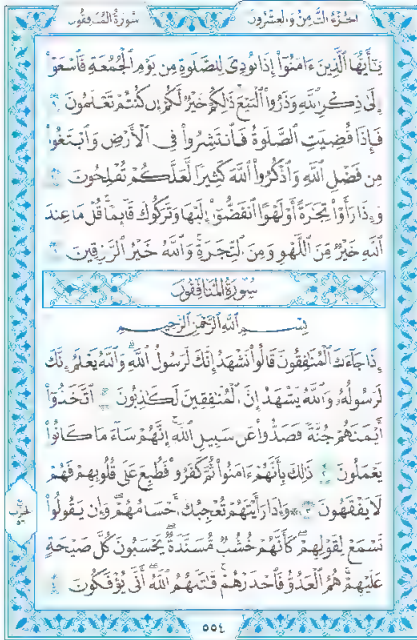 الجزء الثامن والعشرون سورة المنافقون
يَٰٓأَيُّهَا ٱلَّذِينَ ءَامَنُوٓا۟ إِذَا نُودِىَ لِلصَّلَوٰةِ مِن يَوْمِ ٱلْجُمُعَةِ فَٱسْعَوْا۟
إِلَىٰ ذِكْرِ ٱللَّهِ وَذَرُوا۟ ٱلْبَيْعَ ذَٰلِكُمْ خَيْرٌ لَّكُمْ إِن كُنتُمْ تَعْلَمُونَ ٩
فَإِذَا قُضِيَتِ ٱلصَّلَوٰةُ فَٱنتَشِرُوا۟ فِى ٱلْأَرْضِ وَٱبْتَغُوا۟
مِن فَضْلِ ٱللَّهِ وَٱذْكُرُوا۟ ٱللَّهَ كَثِيرًا لَّعَلَّكُمْ تُفْلِحُونَ
وَإِذَا رَأَوْا۟ تِجَٰرَةً أَوْ لَهْوًا ٱنفَضُّوٓا۟ إِلَيْهَا وَتَرَكُوكَ قَآئِمًا قُلْ مَا عِندَ
ٱللَّهِ خَيْرٌ مِّنَ ٱللَّهْوِ وَمِنَ ٱلتِّجَٰرَةِ وَٱللَّهُ خَيْرُ ٱلرَّٰزِقِينَ
سورة المنافقون
بِسْمِ ٱللَّهِ ٱلرَّحْمَٰنِ ٱلرَّحِيمِ
إِذَا جَآءَكَ ٱلْمُنَٰفِقُونَ قَالُوا۟ نَشْهَدُ إِنَّكَ لَرَسُولُ ٱللَّهِ وَٱللَّهُ يَعْلَمُ إِنَّكَ
لَرَسُولُهُۥ وَٱللَّهُ يَشْهَدُ إِنَّ ٱلْمُنَٰفِقِينَ لَكَٰذِبُونَ ٱتَّخَذُوٓا۟
أَيْمَٰنَهُمْ جُنَّةً فَصَدُّوا۟ عَن سَبِيلِ ٱللَّهِ إِنَّهُمْ سَآءَ مَا كَانُوا۟
يَعْمَلُونَ ذَٰلِكَ بِأَنَّهُمْ ءَامَنُوا۟ ثُمَّ كَفَرُوا۟ فَطُبِعَ عَلَىٰ قُلُوبِهِمْ فَهُمْ
لَا يَفْقَهُونَ ٣ وَإِذَا رَأَيْتَهُمْ تُعْجِبُكَ أَجْسَامُهُمْ وَإِن يَقُولُوا۟
تَسْمَعْ لِقَوْلِهِمْ كَأَنَّهُمْ خُشُبٌ مُّسَنَّدَةٌ يَحْسَبُونَ كُلَّ صَيْحَةٍ
عَلَيْهِمْ هُمُ ٱلْعَدُوُّ فَٱحْذَرْهُمْ قَٰتَلَهُمُ ٱللَّهُ أَنَّىٰ يُؤْفَكُونَ
٥٥٤